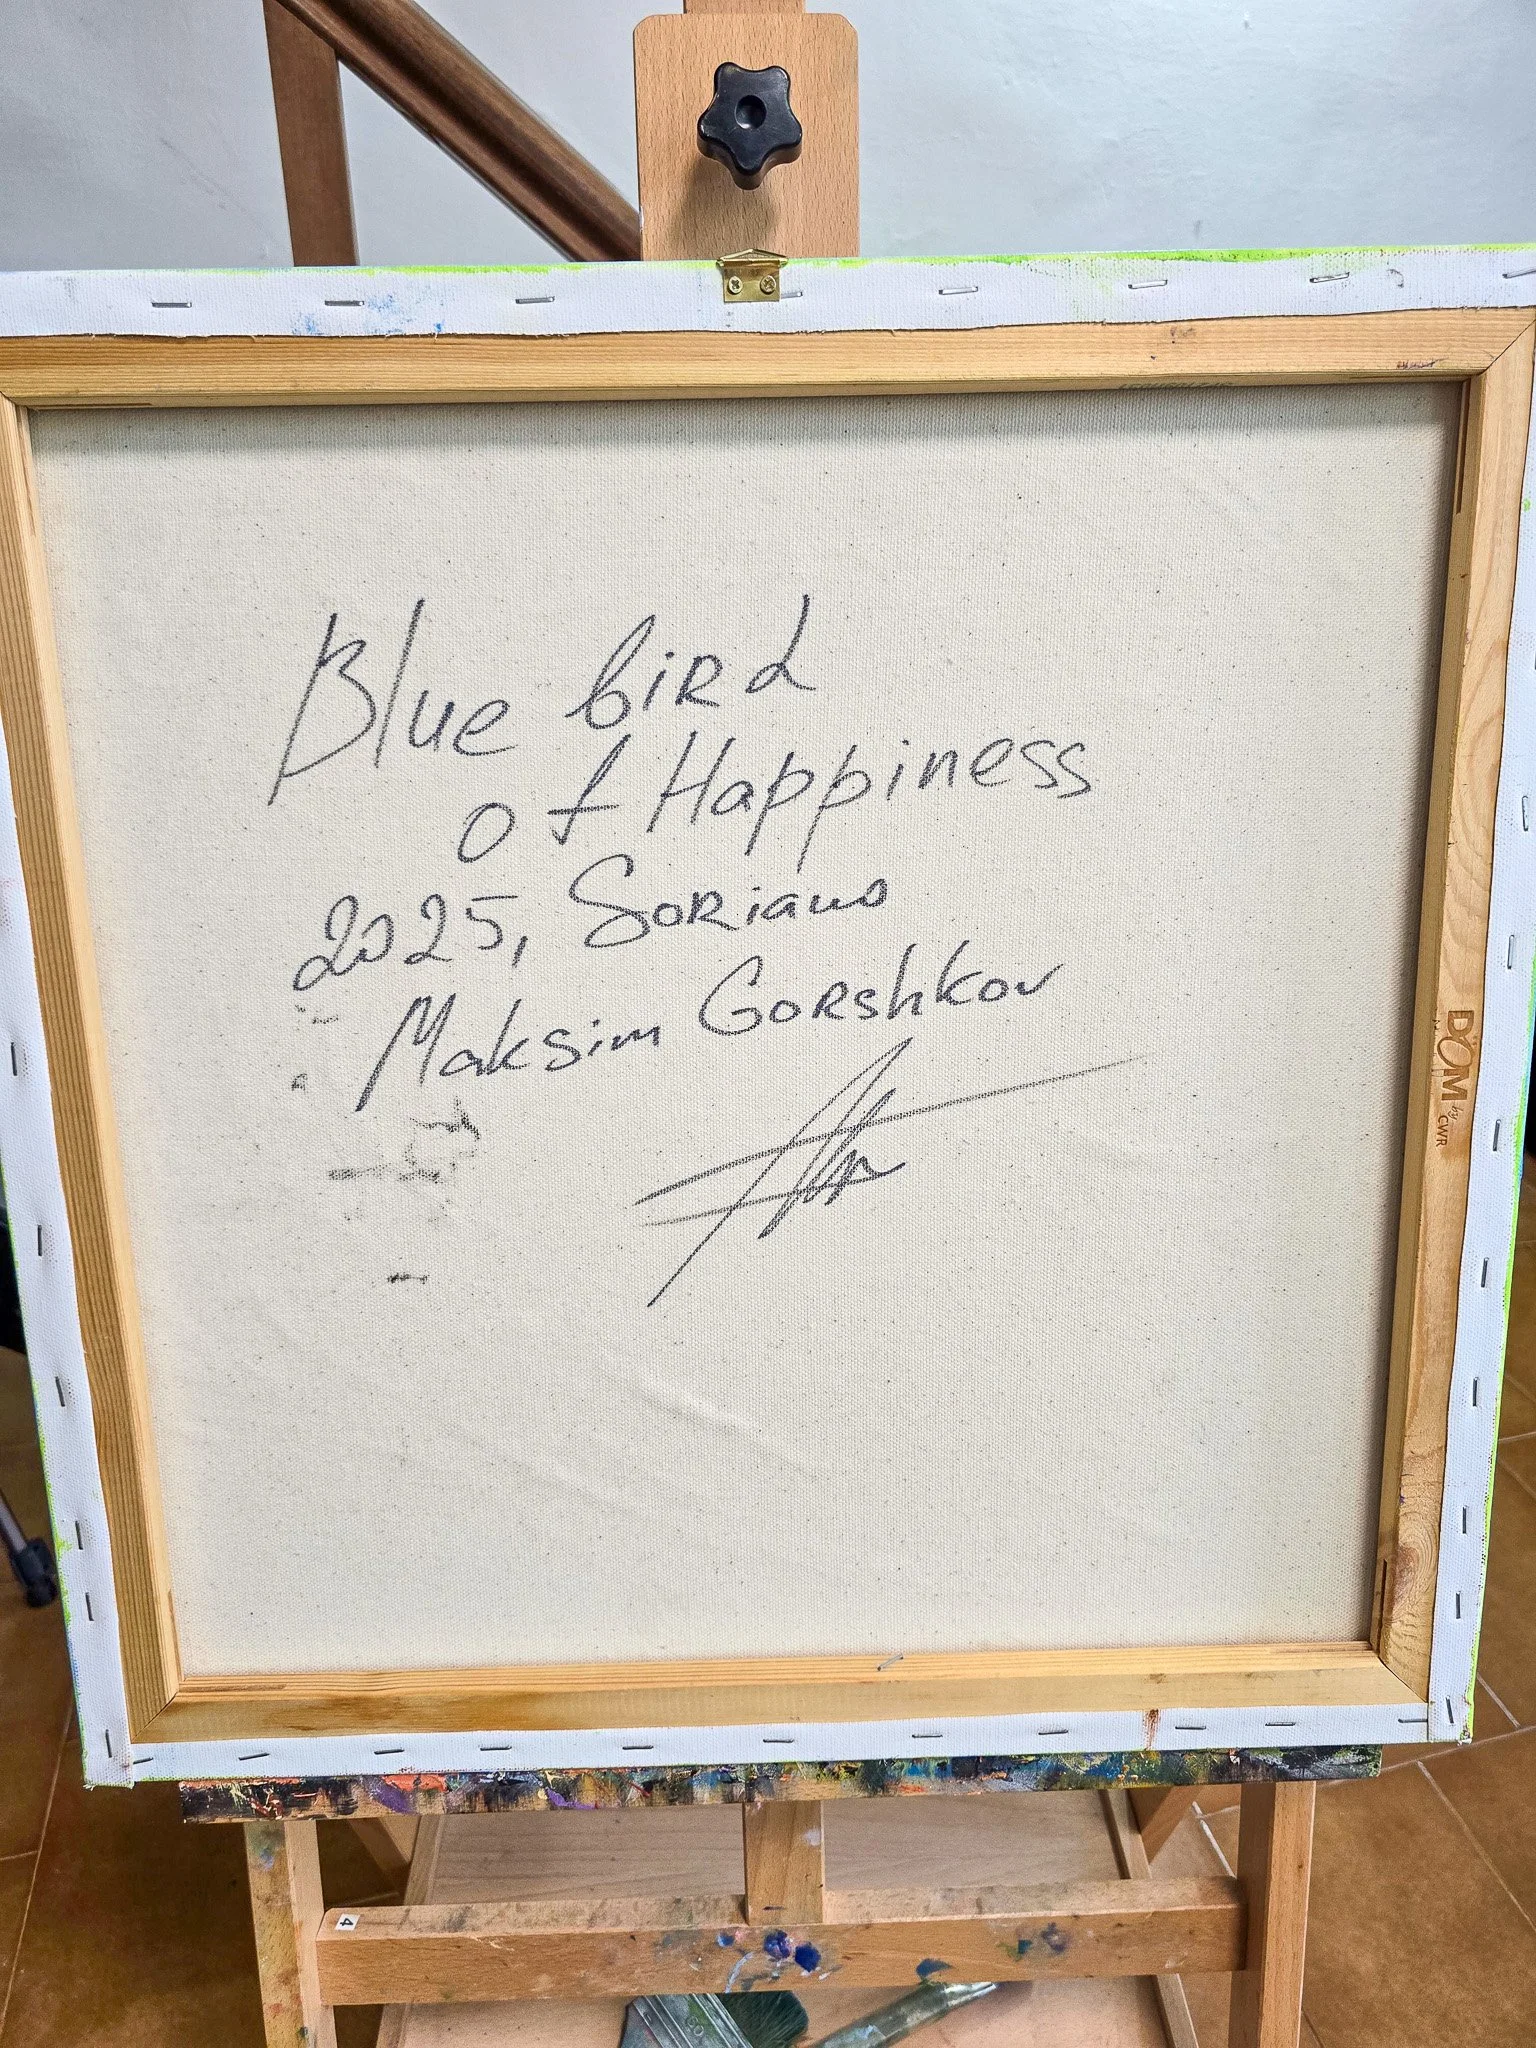 Blue bird
of Happiness
2025, Soriano
Maksim Gorshkov
DOM
by CWR
4